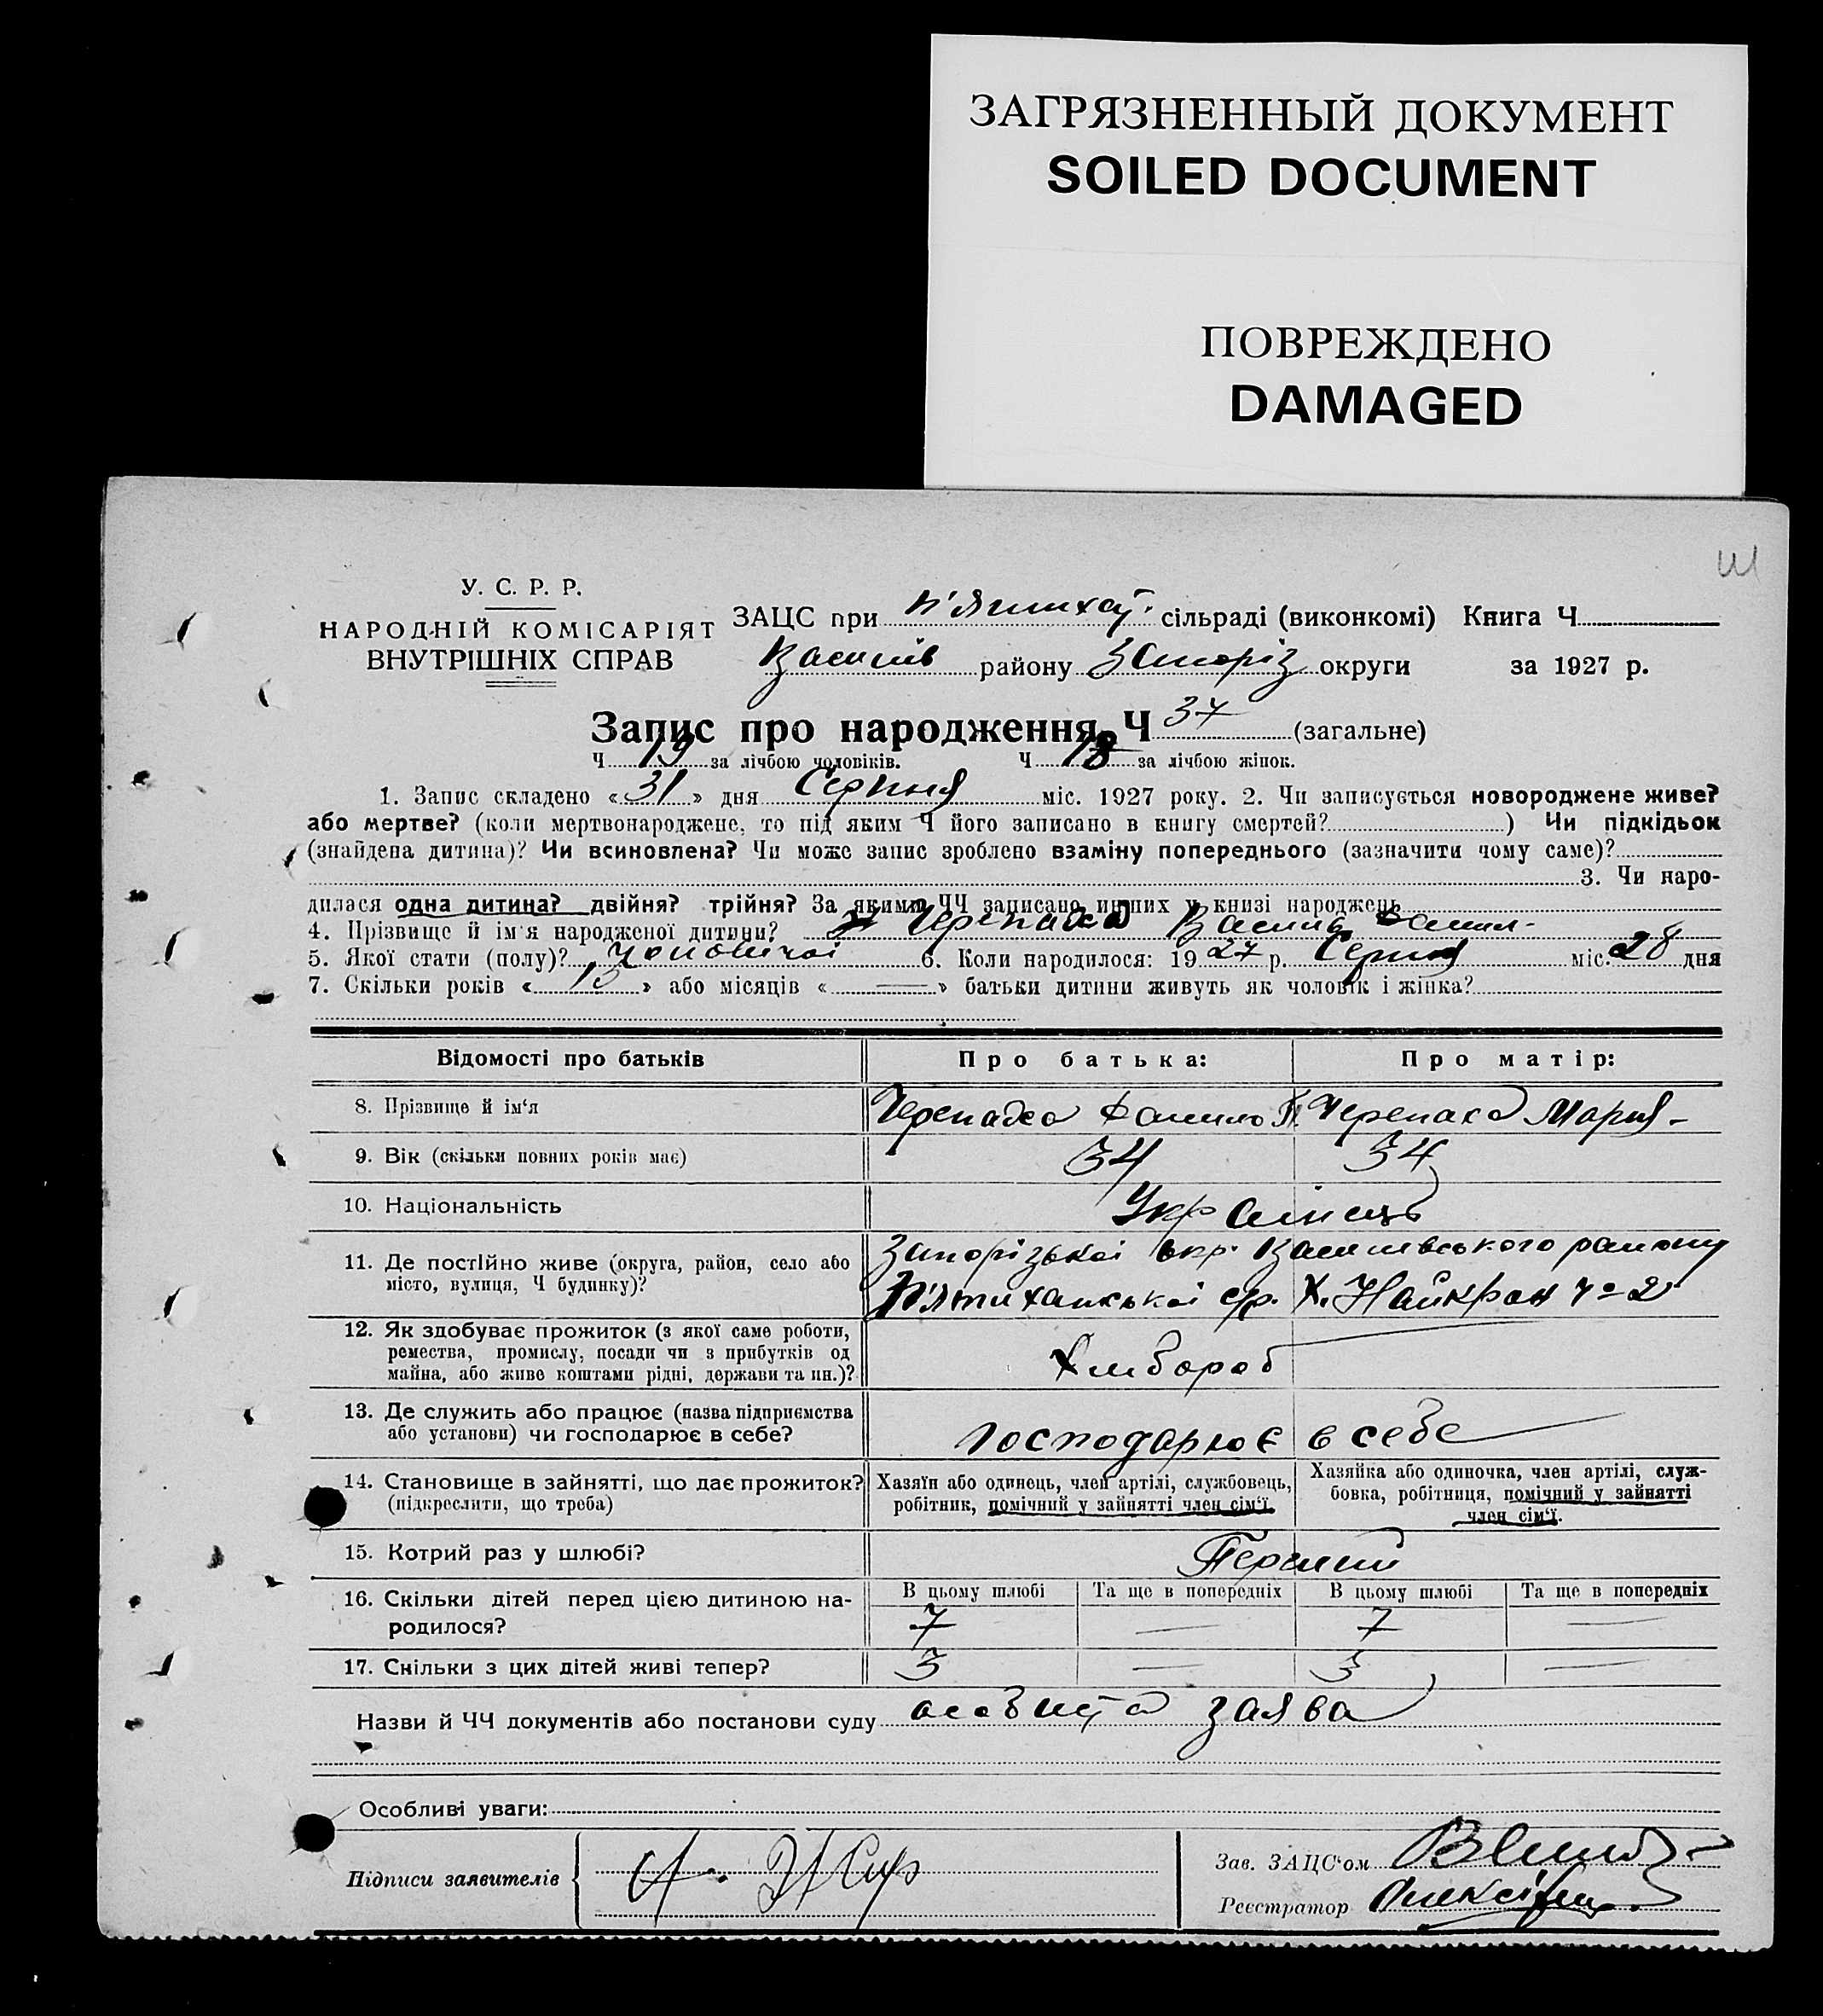 ЗАГРЯЗНЕННЫЙ ДОКУМЕНТ
SOILED DOCUMENT
ПОВРЕЖДЕНО
DAMAGED
У. С. Р. Р.
НАРОДНІЙ КОМІСАРІЯТ
ВНУТРІШНІХ СПРАВ
ЗАЦС при П'ятихат. сільраді (виконкомі) Книга Ч
Василів району Запоріз округи за 1927 р.
Запис про народження Ч 37 (загальне)
Ч 19 за лічбою чоловіків. Ч 18 за лічбою жінок.
1. Запис складено «31» дня Серпня міс. 1927 року. 2. Чи записується новороджене живе?
або мертве? (коли мертвонароджене, то під яким Ч його записано в книгу смертей? ) Чи підкідьок
(знайдена дитина)? Чи всиновлена? Чи може запис зроблено взаміну попереднього (зазначити чому саме)?
3. Чи наро-
дилася одна дитина? двійня? трійня? За якими ЧЧ записано инших у книзі народжень
4. Прізвище й ім'я народженої дитини? Черепаха Василь
5. Якої стати (полу)? Чоловічої 6. Коли народилося: 1927 р. Серпня міс. 28 дня
7. Скільки років «15» або місяців «—» батьки дитини живуть як чоловік і жінка?
Відомості про батьків Про батька: Про матір:
8. Прізвище й ім'я Черепаха Данило П. Черепаха Мария
9. Вік (скільки повних років має) 34 34
10. Національність Українець
11. Де постійно живе (округа, район, село або
місто, вулиця, Ч будинку)?
Запорізької окр. Василівського району
П'ятихатської с/р. Х. Найкрон № 2
12. Як здобуває прожиток (з якої саме роботи,
ремества, промислу, посади чи з прибутків од
майна, або живе коштами рідні, держави та ин.)?
Хлібороб
13. Де служить або працює (назва підприємства
або установи) чи господарює в себе?
господарює в себе
14. Становище в зайнятті, що дає прожиток?
(підкреслити, що треба)
Хазяїн або одинець, член артілі, службовець,
робітник, помічний у зайнятті член сім'ї.
Хазяйка або одиночка, член артілі, служ-
бовка, робітниця, помічний у зайнятті
член сім'ї.
15. Котрий раз у шлюбі? Перший
16. Скільки дітей перед цією дитиною на-
родилося?
В цьому шлюбі Та ще в попередніх В цьому шлюбі Та ще в попередніх
7 — 7 —
17. Скільки з цих дітей живі тепер? 3 — 3 —
Назви й ЧЧ документів або постанови суду особиста заява
Особливі уваги:
Підписи заявителів
Зав. ЗАЦС'ом
Реєстратор